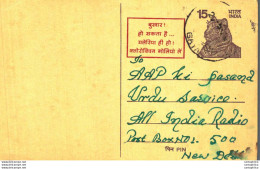 बुखार!
हो सकता है...
मलेरिया ही हो!
क्लोरोक्विन गोलियां लें
15
भारत
INDIA
To
AAP ki pasand
Urdu Service
All India Radio
Post Box No. 500
पिन PIN
New Delhi